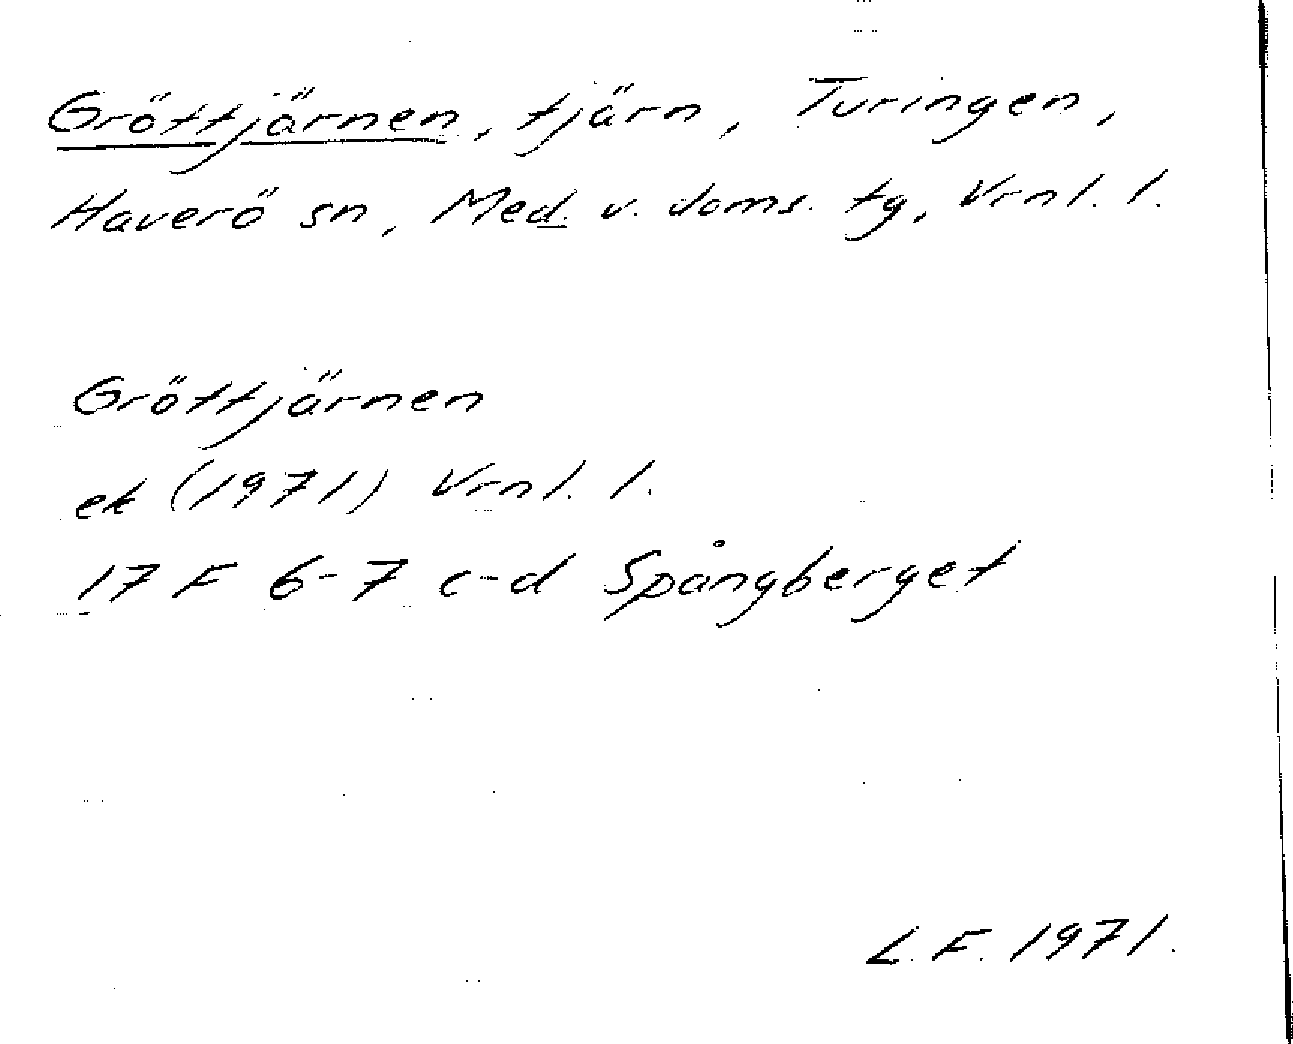 Gröttjärnen, tjärn, Turingen,
Haverö sn, Med. v. doms. tg, Vrnl. l.
Gröttjärnen
ek (1971) Vrnl. l.
17 F 6-7 c-d Spångberget
L. F. 1971.